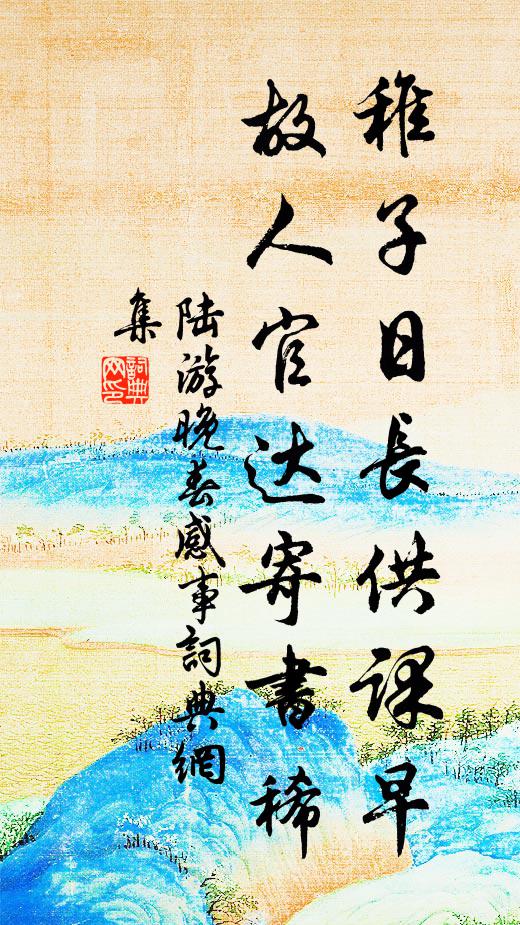 稚子日長供课早
故人官达寄書稀
陆游晚春感事詞典網
集
詞典
网印